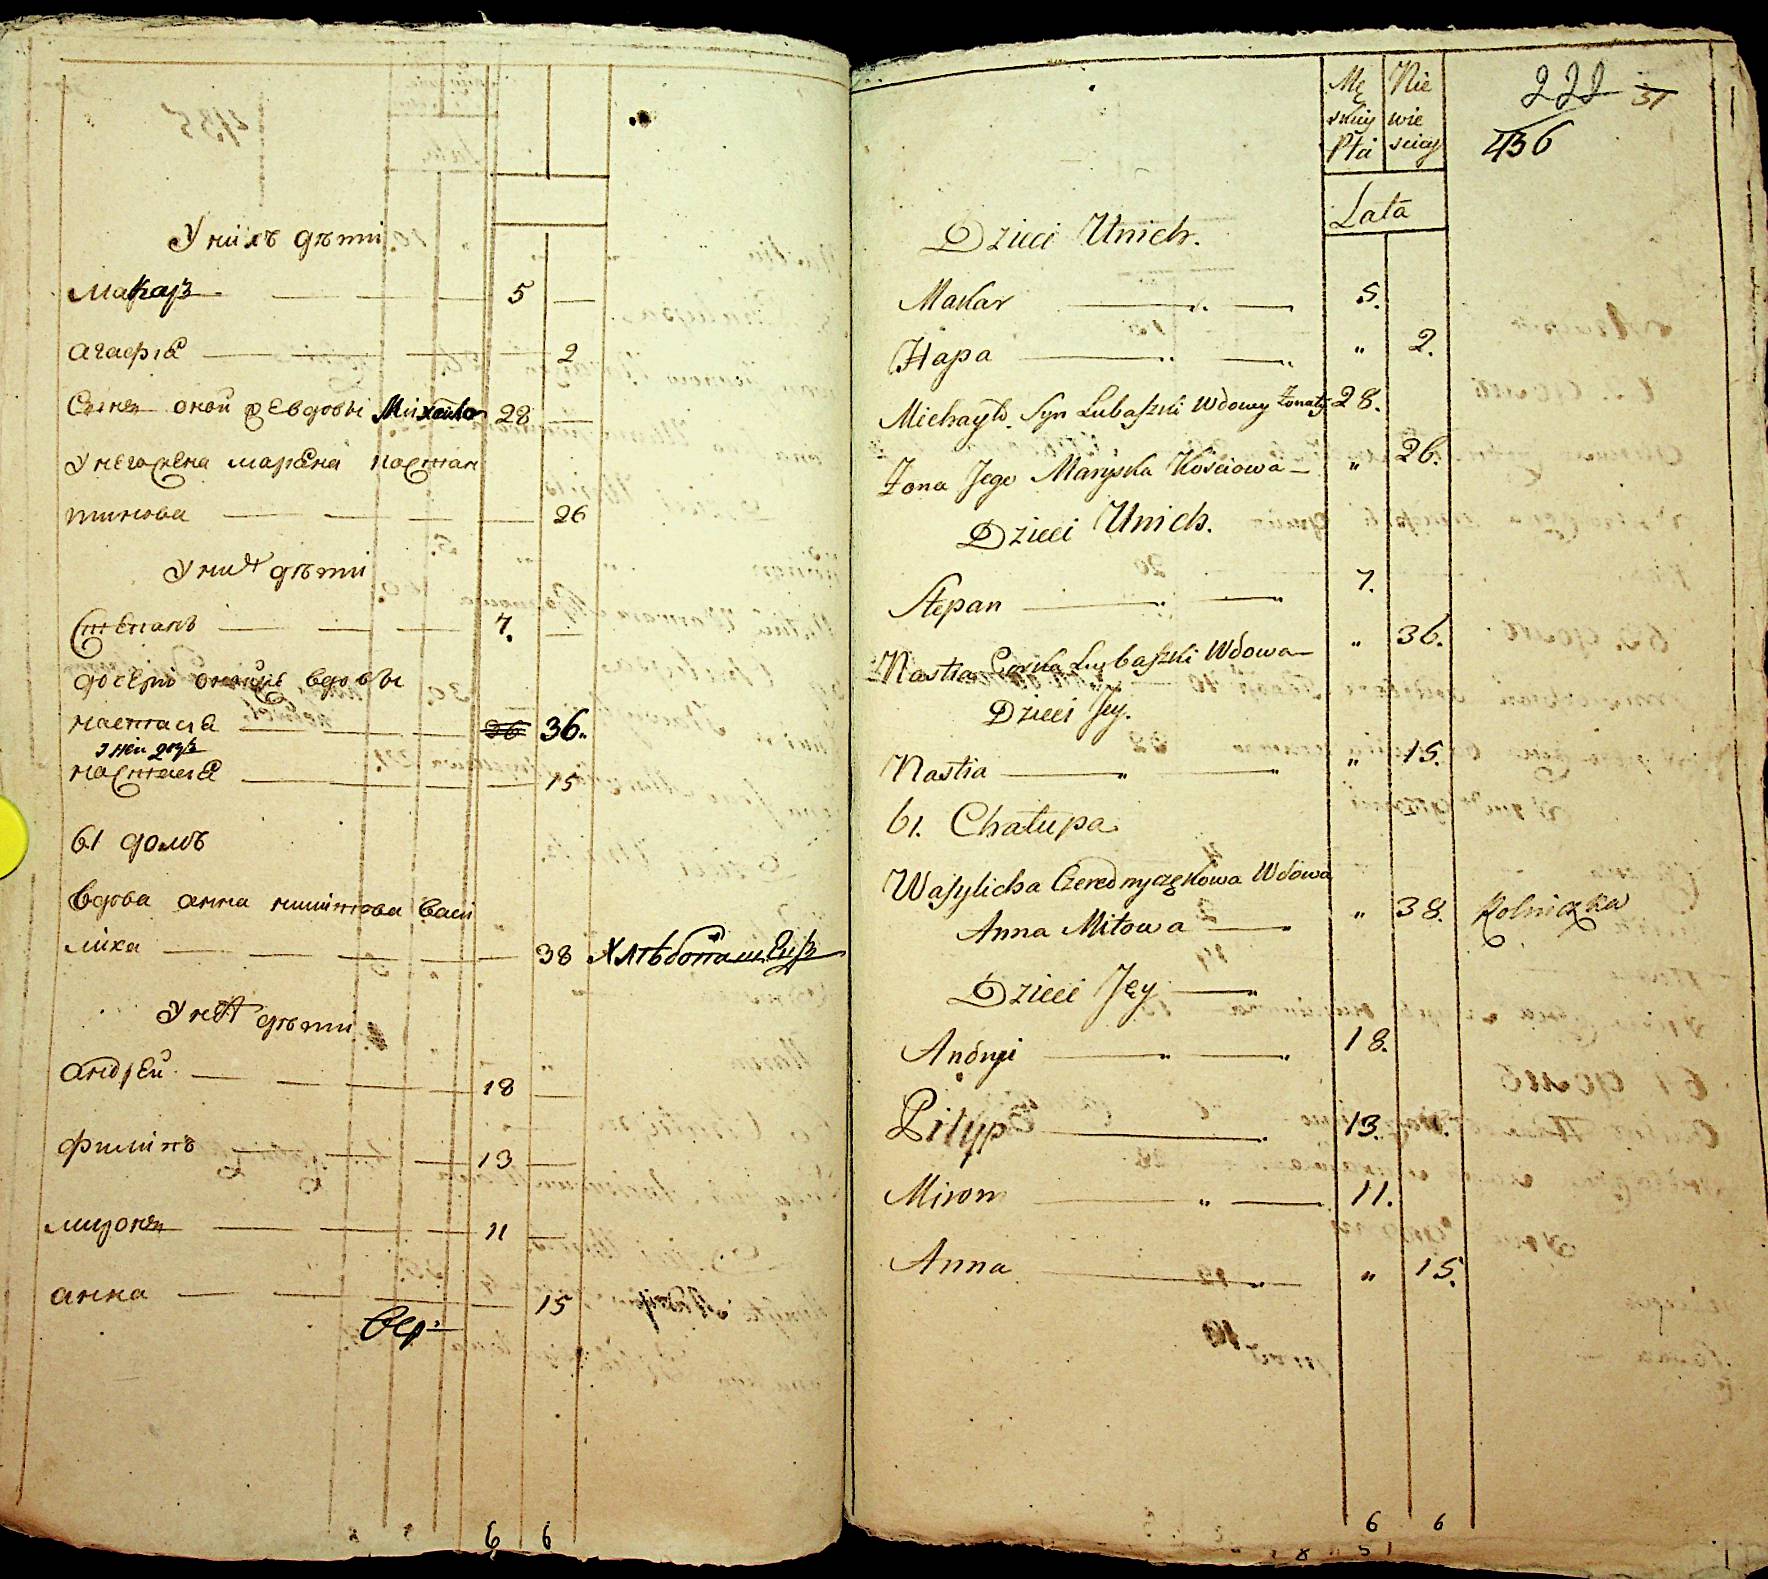 У нихъ дѣти
Макаръ — 5 —
агафія — 2
Сынъ оной вдовы Михайло 28 —
У него жена марѣна Костан
тинова — 26
У них дѣти
Степанъ — 7. —
дочерь оной вдовы
настасіа — 36.
у ней дочь
настасіа — 15
61 домъ
вдова анна никитова васи
лиха — 38 Хлѣбопашецъ
У неѣ дѣти
андрей — 18 —
филипъ — 13 —
миронъ — 11 —
анна — 15
вер:
6 6
Mę Nie
skiey wie
Płci sciey
222 31
436
Lata
Dzieci Unich.
Makar — 5.
Hapa — " 2.
Michayło Syn Lubaszki Wdowy Żonaty 28.
Żona Jego Maryska Kościowa — " 26.
Dzieci Unich.
Stepan — 7.
Nastia Corka Lubaszki Wdowa — " 36.
Dzieci Jey.
Nastia — " 15.
61. Chałupa
Wasylicha Czerednyczękowa Wdowa
Anna Mitowa — " 38. Rolniczka
Dzieci Jęy —
Andryi — 18.
Pilyp — 13.
Miron — 11.
Anna — " 15.
6 6